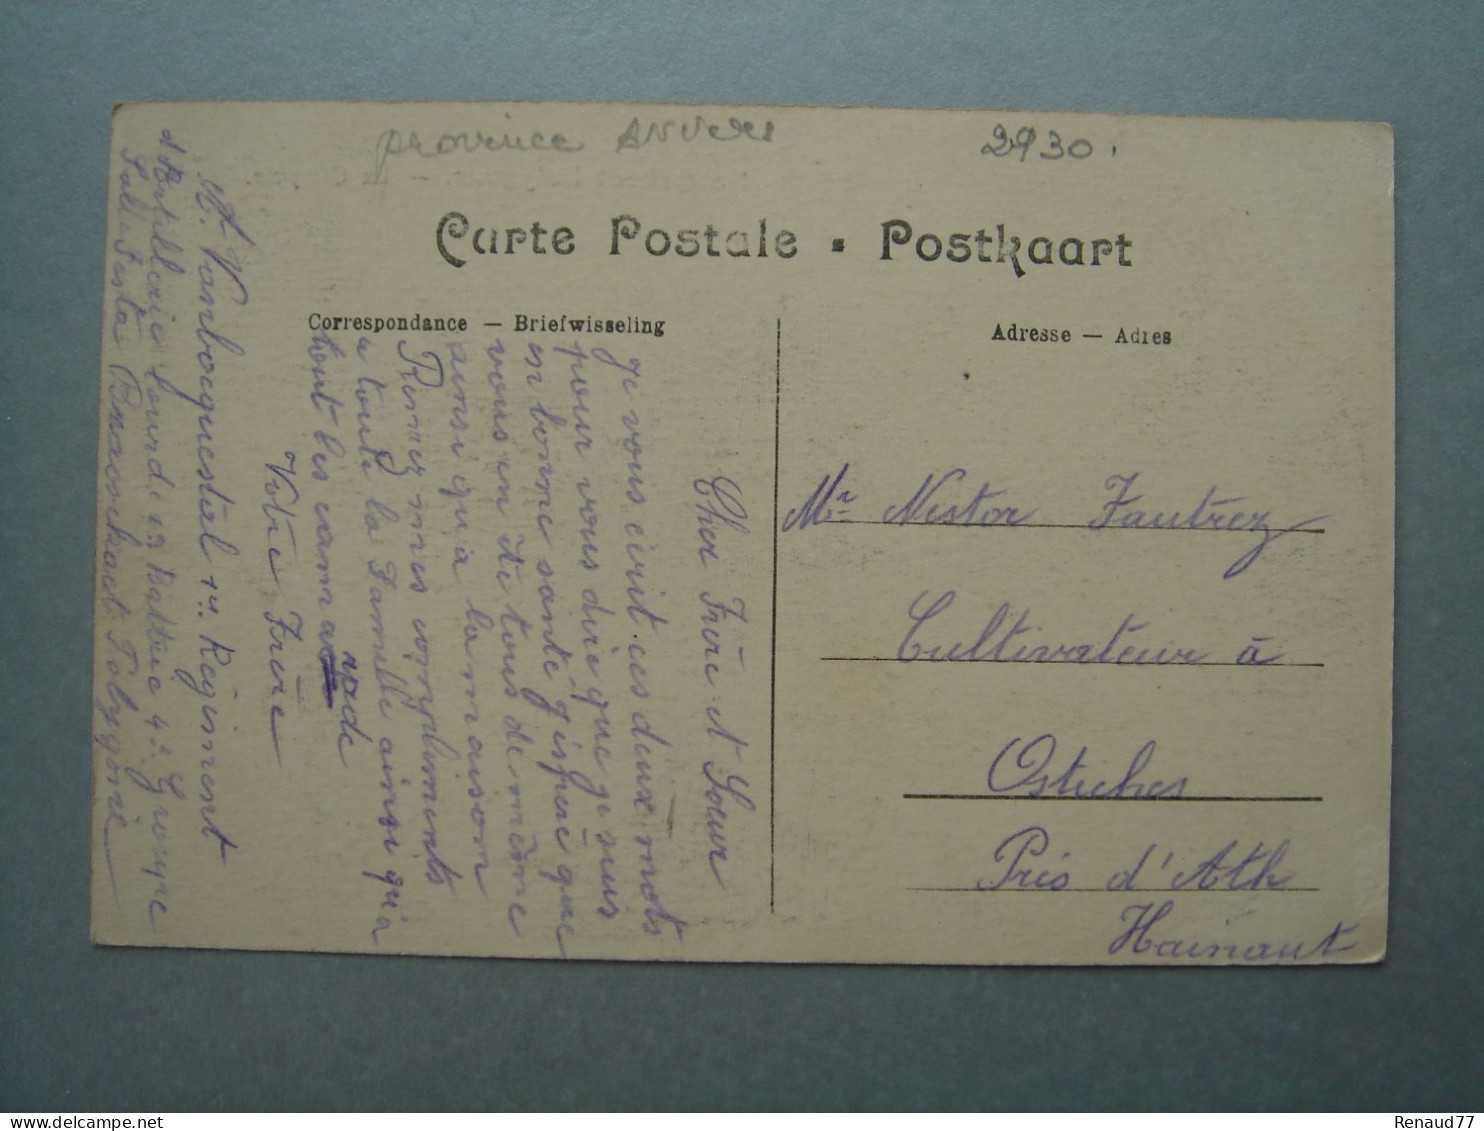 province ANVERS
2930.
Carte Postale - Postkaart
Correspondance — Briefwisseling
Adresse — Adres
Cher Frère et Soeur
je vous écrit ces deux mots
pour vous dire que je suis
en bonne santé j'espère que
vous en ète tous de même
ainsi qu'a la maison
Remez mes compliments
a toute la Famille ainsi qu'a
tout les cama
rade
Votre Frère
A. Vanbocquestal 1er Régiment
d'Artillerie lourde 12 Battrie 4e Groupe
Salle Brasschaet Polygone
Mr Nestor Fautrez
Cultivateur à
Ostiches
Près d'Ath
Hainaut
Renaud77